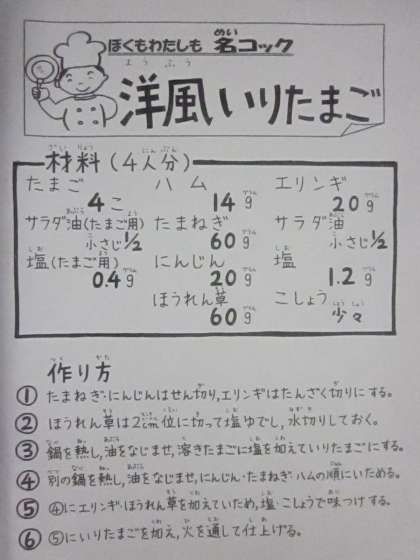 ぼくもわたしも 名コック
洋風いりたまご
材料(4人分)
たまご 4こ
ハム 14g
エリンギ 20g
サラダ油(たまご用) 小さじ1/2
たまねぎ 60g
サラダ油 小さじ1/2
塩(たまご用) 0.4g
にんじん 20g
塩 1.2g
ほうれん草 60g
こしょう 少々
作り方
① たまねぎ・にんじんはせん切り,エリンギはたんざく切りにする。
② ほうれん草は2cm位に切って塩ゆでし,水切りしておく。
③ 鍋を熱し,油をなじませ,溶きたまごに塩を加えていりたまごにする。
④ 別の鍋を熱し,油をなじませ,にんじん・たまねぎ・ハムの順にいためる。
⑤ ④にエリンギ・ほうれん草を加えていため,塩・こしょうで味つけする。
⑥ ⑤にいりたまごを加え,火を通して仕上げる。